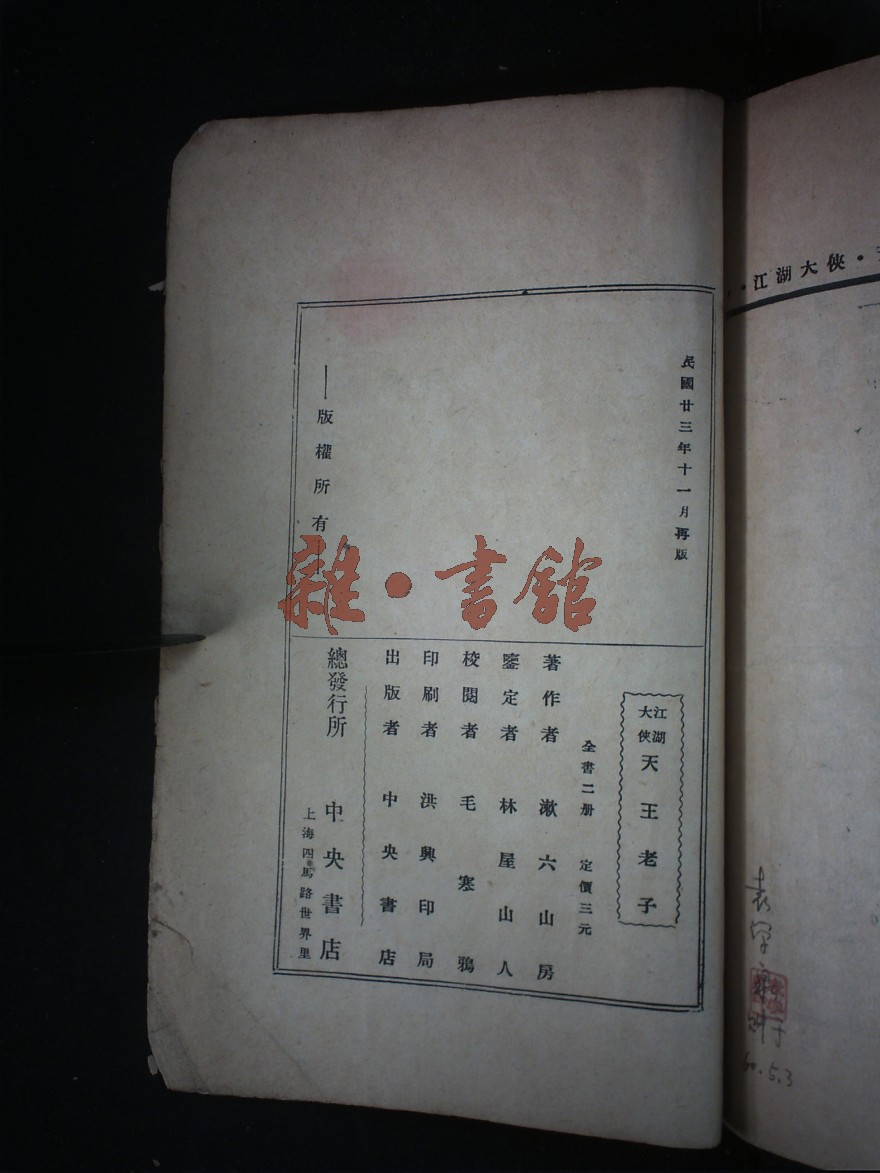 江湖大俠
民國廿三年十一月再版
版權所有
雜·書館
江湖大俠
天王老子
全書二册 定價三元
著作者 漱六山房
鑒定者 林屋山人
校閱者 毛寒鴉
印刷者 洪興印局
出版者 中央書店
總發行所 中央書店
上海四馬路世界里
60.5.3